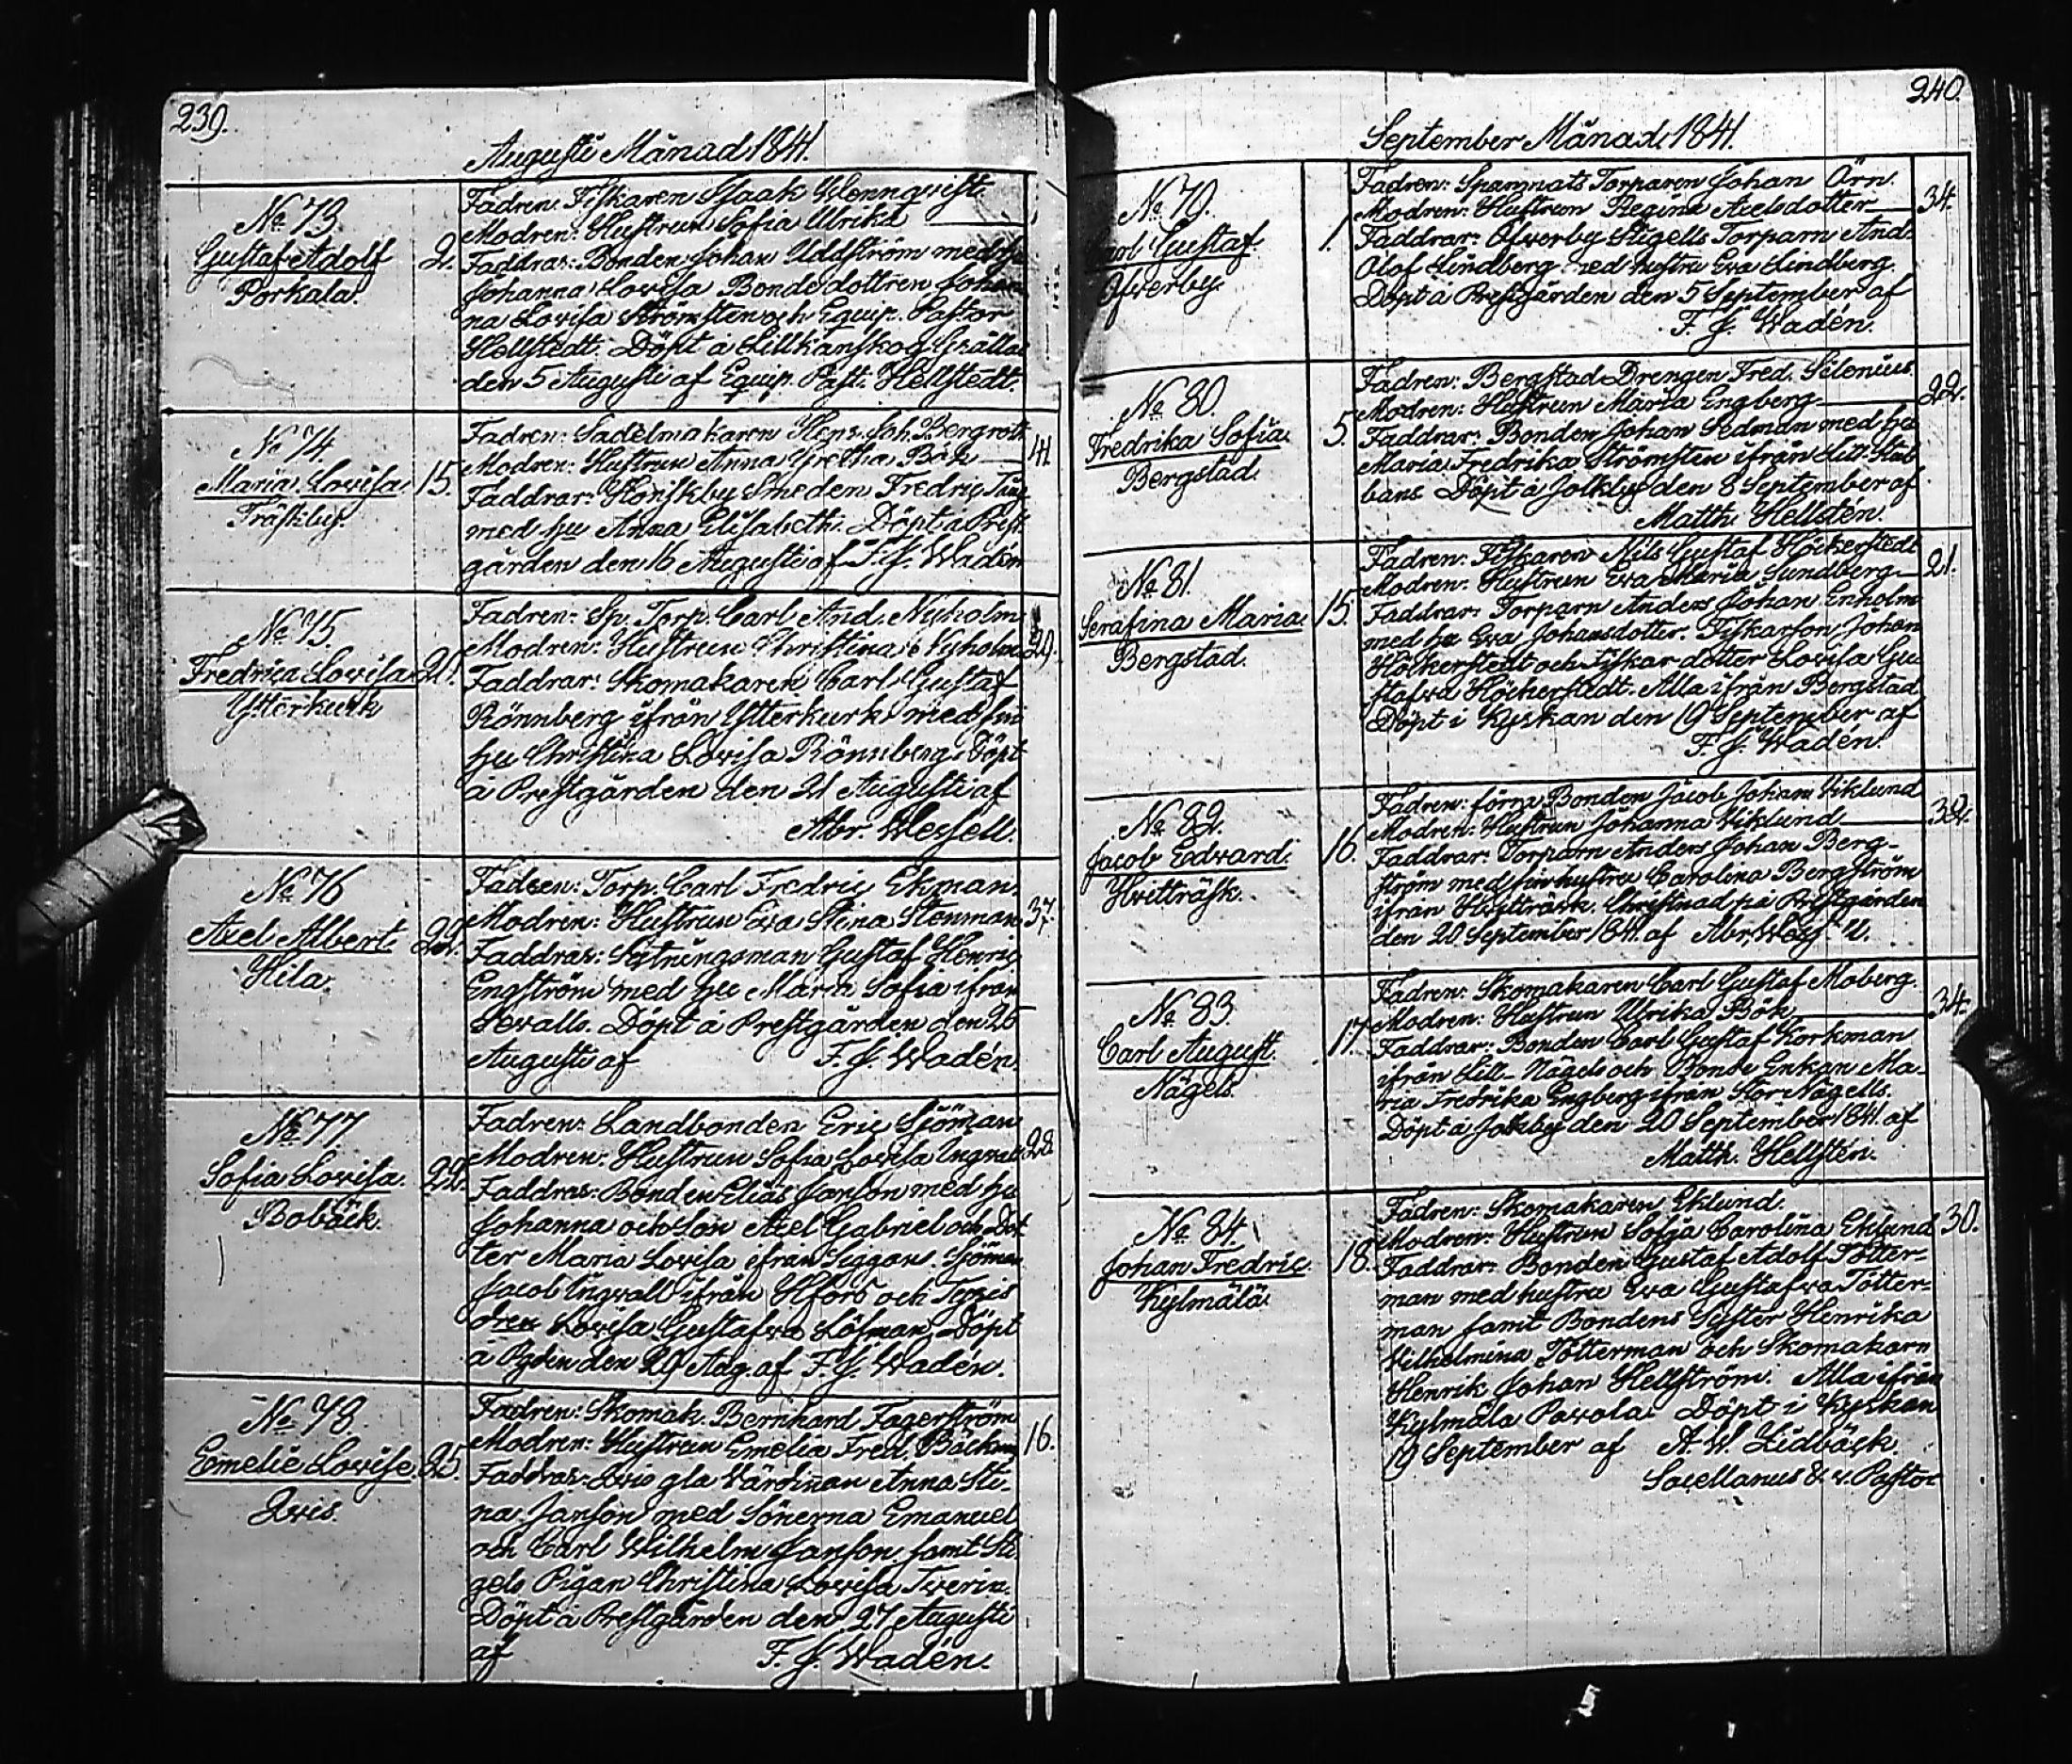 239.
Augusti Månad 1841.
No 73.
Gustaf Adolf
Porkala.
2.
Fadren: Fiskaren Isaak Wennqvist.
Modren: Hustrun Sofia Ulrika
Faddrar: Bonden Johan Uddström med hu
Johanna Lovisa Bondedottren Johan
na Lovisa Strömsten och Equip. Pastor
Hellstedt. Döpt å Lillkanskog Grällas
den 5 Augusti af Equip. Past. Hellstedt.
No 74.
Maria Lovisa.
Träskby.
15.
Fadren: Sadelmakaren Henr. Joh. Bergroth
Modren: Hustrun Anna Gretha Bök
41
Faddrar: Konskby Smeden Fredric
med hu Anna Elisabeth. Döpt å Prest
gården den 16 Augusti af F. J. Wadén
No 75.
Fredrica Lovisa
Ytterkurk
21.
Fadren: Sp. Torp. Carl And. Nyholm
Modren: Hustrun Christina Nyholm
29.
Faddrar: Skomakaren Carl Gustaf
Rönnberg ifrån Ytterkurk med sin
hu Christina Lovisa Rönnberg. Döpt
å Prestgården den 21 Augusti af
Abr. Wessell.
No 76
Axel Albert.
Hila.
22.
Fadren: Torp. Carl Fredric Ekman.
Modren: Hustrun Eva Stina Stenman
37.
Faddrar: Sytningsman Gustaf Henric
Engström med hu Maria Sofia ifrån
Sevalls. Döpt å Prestgården den 25
Augusti af F. J. Wadén.
No 77
Sofia Lovisa.
Bobäck.
22.
Fadren: Landbonden Eric Sjöman
Modren: Hustrun Sofia Lovisa Ingvall
28.
Faddrar: Bonden Elias Janson med hu
Johanna och son Axel Gabriel och Dot
ter Maria Lovisa ifrån Seggars. Sjöman
Jacob Ingvall ifrån Hfors och
Lovisa Gustafva Löfman. Döpt
å Byden den 29 Aug. af F. J. Wadén.
No 78.
Emelie Lovise.
Qvis.
25.
Fadren: Skomak. Bernhard Fagerström
Modren: Hustrun Emelia Fred. Bäckman
16.
Faddrar: Qvis gla Värdinan Anna Sti-
na Janson med Sönerna Emanuel
och Carl Wilhelm Janson samt Sti
gels Pigan Christina Lovisa Tverin.
Döpt å Prestgården den 27 Augusti
af F. J. Wadén.
240.
September Månad 1841.
No 79.
Carl Gustaf.
Öfverby.
1.
Fadren: Spannats Torparen Johan Örn.
Modren: Hustrun Regina Axelsdotter
34.
Faddrar: Öfverby Stigells Torparn And.
Olof Lindberg med hustru Eva Lindberg.
Döpt å Prestgården den 5 September af
F. J. Wadén.
No 80.
Fredrika Sofia.
Bergstad.
5.
Fadren: Bergstad Drengen Fred. Silenius.
Modren: Hustrun Maria Engberg
22.
Faddrar: Bonden Johan Sedman med hu
Maria Fredrika Strömsten ifrån Lill-Stub
bans. Döpt å Jolkby den 8 September af
Matth. Hellstén.
No 81.
Serafina Maria.
Bergstad.
15.
Fadren: Fiskaren Nils Gustaf Höckerstedt
Modren: Hustrun Eva Maria Sundberg
21.
Faddrar: Torparn Anders Johan Enholm
med hu Eva Johansdotter. Fiskarson Johan
Höckerstedt och Fiskardotter Lovisa Gu
stafva Höckerstedt. Alla ifrån Bergstad.
Döpt i Kyrkan den 19 September af
F. J. Wadén.
No 82.
Jacob Edvard.
Hvitträsk.
16.
Fadren: förra Bonden Jacob Johan Viklund
Modren: Hustrun Johanna Viklund
32.
Faddrar: Torparn Anders Johan Berg-
ström med sin hustru Carolina Bergström
ifrån Hvitträsk. Christnad på Prestgården
den 20 September 1841. af Abr. Wess-ll.
No 83.
Carl August.
Nägels.
17.
Fadren: Skomakaren Carl Gustaf Moberg.
Modren: Hustrun Ulrika Bök
34.
Faddrar: Bonden Carl Gustaf Korkman
ifrån Lill-Nägels och Bonde Enkan Ma-
ria Fredrika Engberg ifrån Stor Nägells.
Döpt å Jolkby den 20 September 1841. af
Matth. Hellstén.
No 84.
Johan Fredric.
Kylmälä.
18.
Fadren: Skomakaren Eklund.
Modren: Hustrun Sofia Carolina Eklund
30.
Faddrar: Bonden Gustaf Adolf Tötter-
man med hustru Eva Gustafva Tötter-
man samt Bondens Syster Henrika
Vilhelmina Tötterman och Skomakarn
Henrik Johan Hellström. Alla ifrån
Kylmäla Pavola. Döpt i Kyrkan
19 September af A. W. Lidbäck.
Sacellanus & v. Pastor